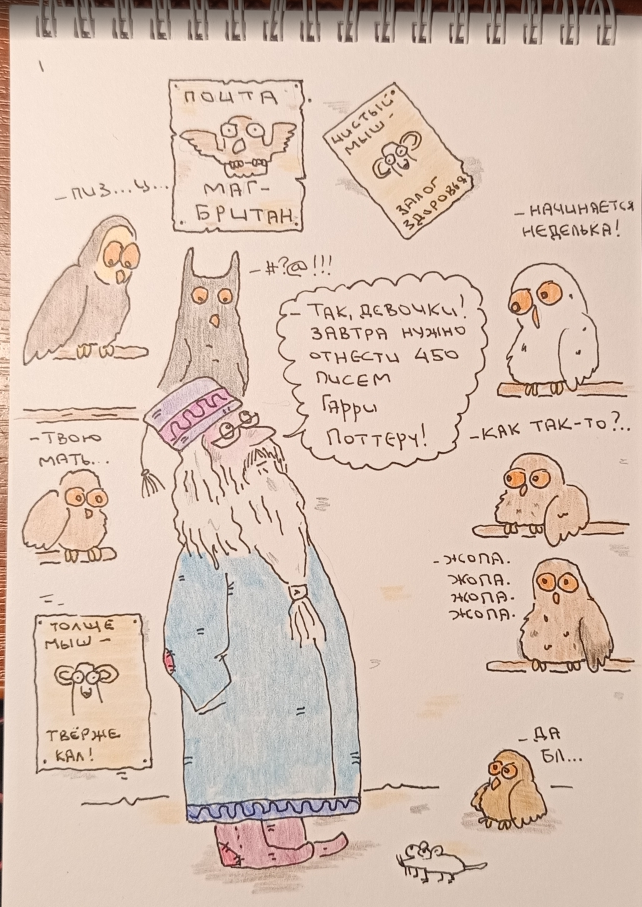 ПОЧТА
МАГ-
БРИТАН.
ЧИСТЫЙ
МЫШ -
ЗАЛОГ
ЗДОРОВЬЯ
- ПИЗ...Ц...
- #?@!!!
- НАЧИНАЕТСЯ
НЕДЕЛЬКА!
- ТАК, ДЕВОЧКИ!
ЗАВТРА НУЖНО
ОТНЕСТИ 450
ПИСЕМ
ГАРРИ
ПОТТЕРУ!
- ТВОЮ
МАТЬ...
- КАК ТАК-ТО?..
- ЖОПА.
ЖОПА.
ЖОПА.
ЖОПА.
ТОЛЩЕ
МЫШ -
ТВЁРЖЕ
КАЛ!
- ДА
БЛ...